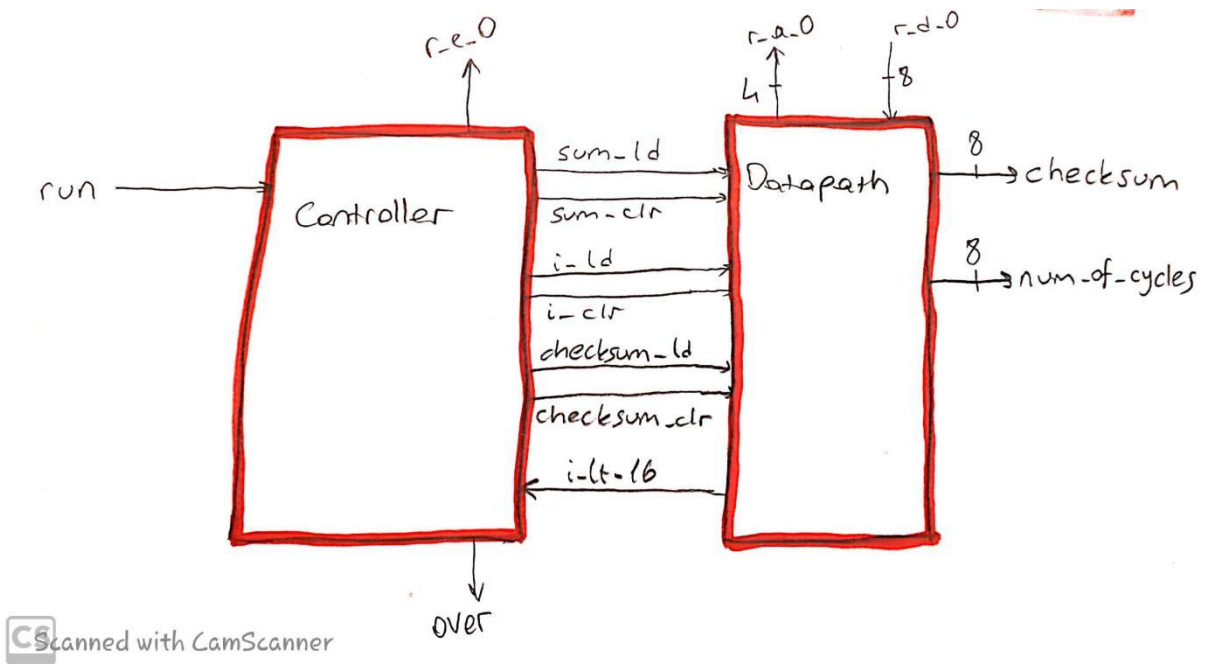 r_e_0
r_a_0
r_d_0
4
8
run
Controller
sum_ld
sum_clr
i_ld
i_clr
checksum_ld
checksum_clr
i_lt_16
Datapath
8
checksum
8
num_of_cycles
over
CS Scanned with CamScanner